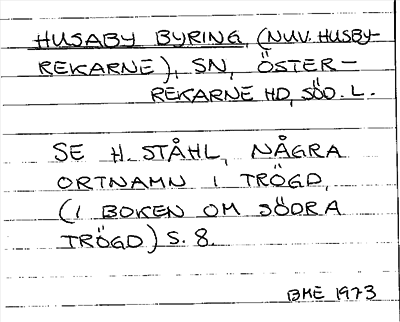 HUSABY BYRING, (NUV. HUSBY-
REKARNE), SN, ÖSTER-
REKARNE HD, SÖD. L.
SE H. STÅHL, NÅGRA
ORTNAMN I TRÖGD,
(I BOKEN OM SÖDRA
TRÖGD) S. 8.
BME 1973